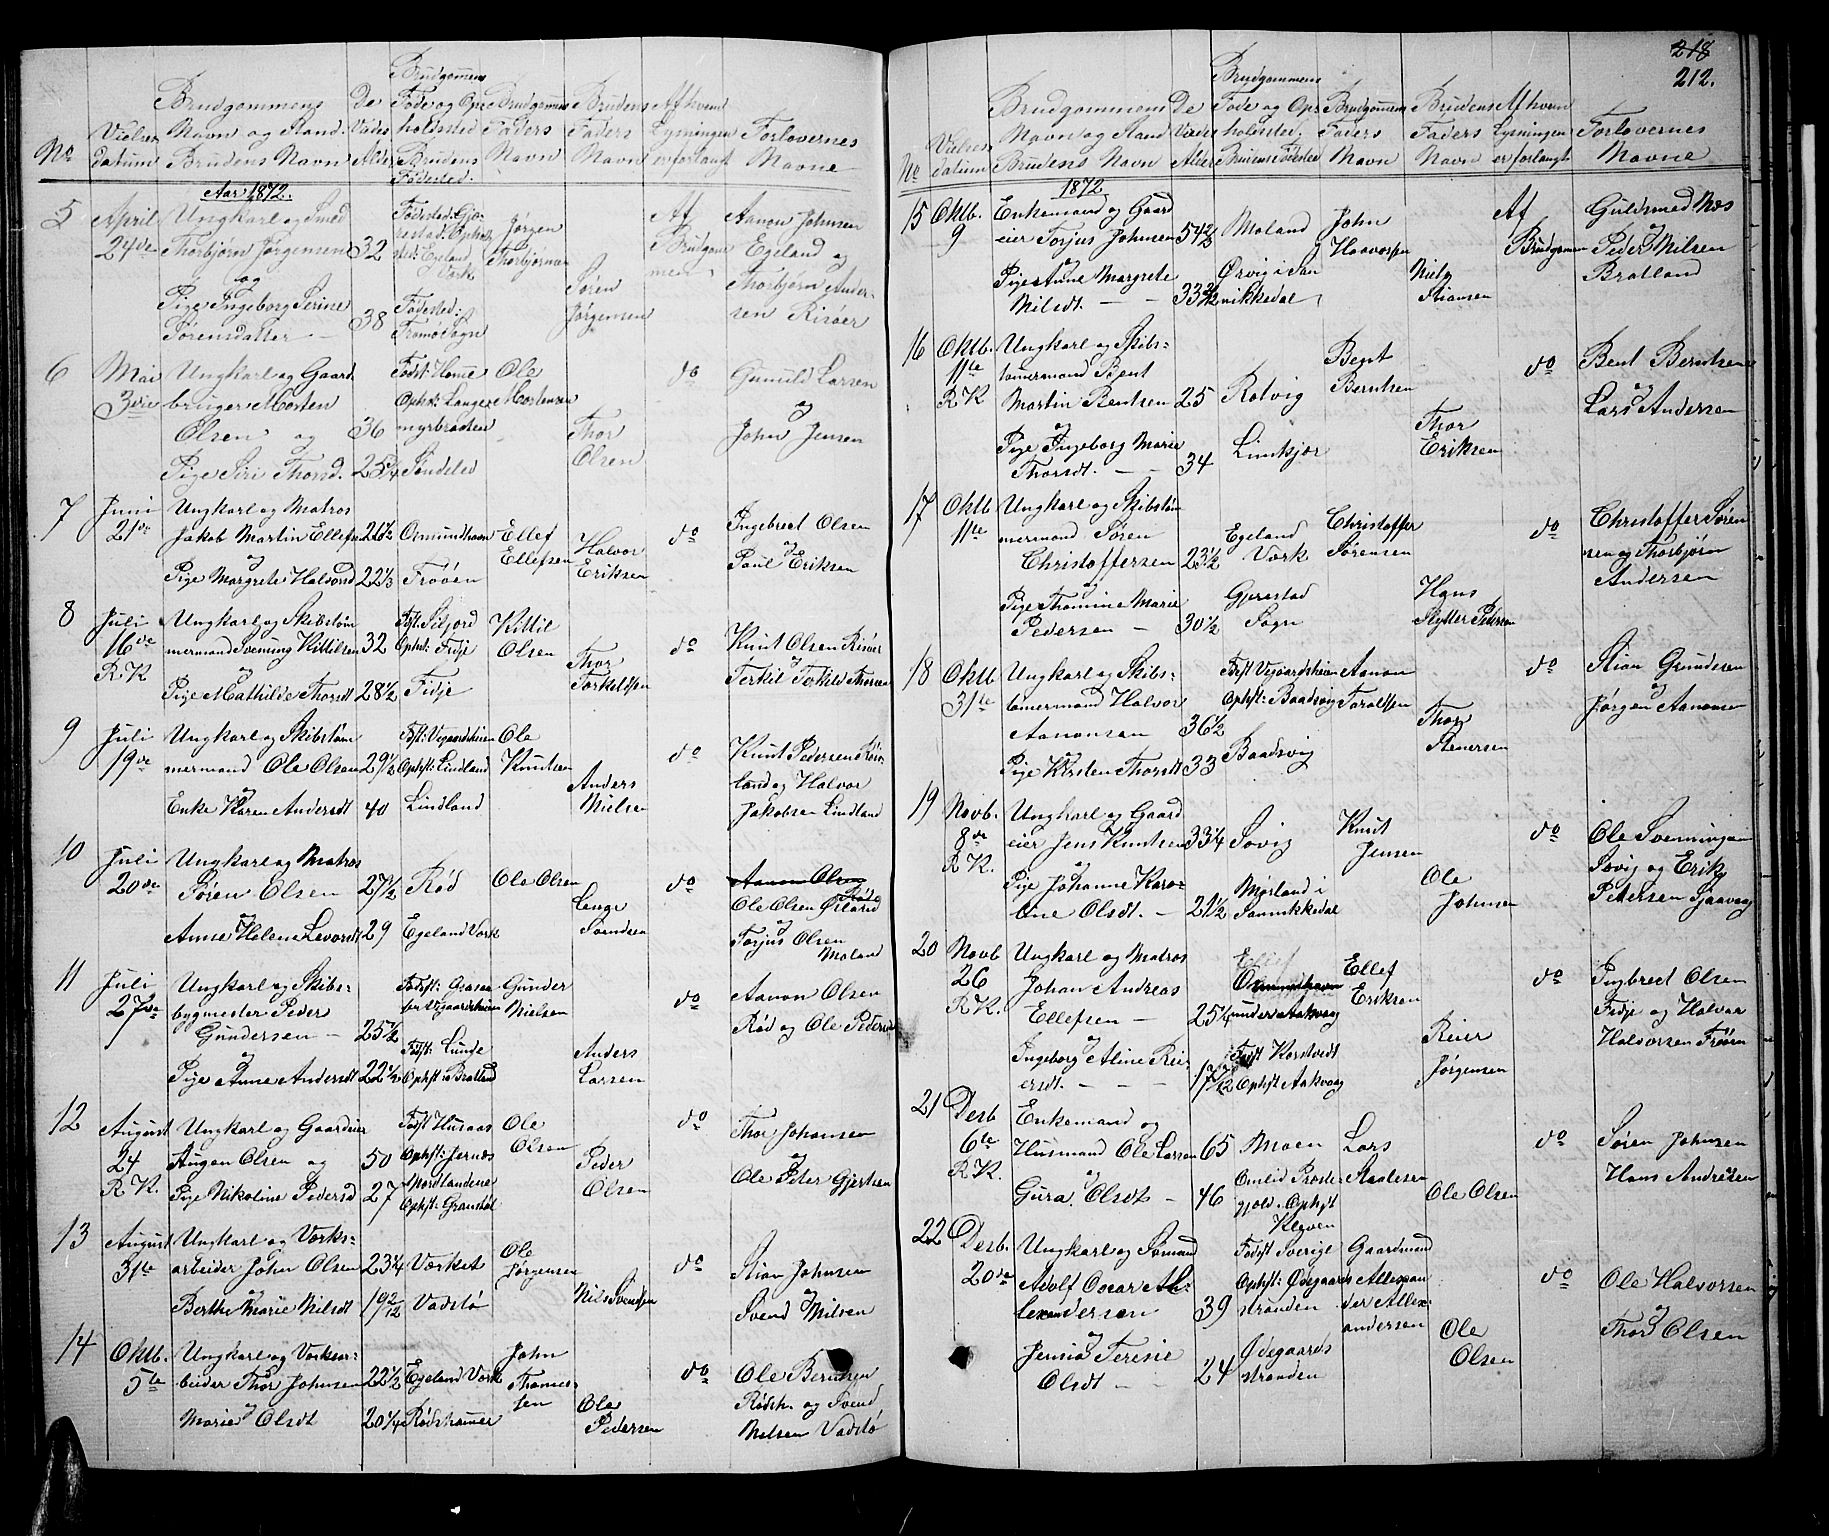 218
212.
No
Vielses
datum
Brudgommens
Navn og Stand
Brudens Navn
De
Viedes
Alder
Brudgommens
Føde og Op-
holdsted
Brudens
Fødested.
Brudgommens
Faders
Navn
Brudens
Faders
Navn
Af hvem
Lysningen
er forlangt
Forlovernes
Navne
Aar 1872.
5 April 24de
Ungkarl og Smed
Thorbjørn Jørgensen 32
og
Pige Ingeborg Serine
Sørensdatter — 38
Fødested: Gje-
restad: Ophol-
sted: Egeland
Værk
Fødested:
Tromø Sogn
Jørgen
Thorbjørnsen
Søren
Jørgensen
Af
Brudgom-
men
Aanon Johnsen
Egeland og
Thorbjørn Ander-
sen Risøer
6 Mai 3die
Ungkarl og Gaard-
bruger Morten
Olsen og 36
Pige Siri Thorsd. 25 3/4
Fødst: Homme
Ophst: Lange-
myrbraaten
Søndeled
Ole
Mortensen
Thor
Olsen
do
Gunuld Larsen
og
John Jensen
7 Juni 21de
Ungkarl og Matros
Jakob Martin Ellefs 21 1/2
og
Pige Margrete Halvorsd 22 1/3
Osmundhavn
Frøen
Ellef
Ellefsen
Halvor
Eriksen
do
Ingebret Olsen
og
Paul Eriksen
8 Juli 16de R.K
Ungkarl og Skibstøm
mermand Svenning Kittilsen 32
og
Pige Mathilde Thorsdt 28 1/2
Fst: Siljord
Ophst: Fidje
Fidje
Kittil
Olsen
Thor
Torkelsen
do
Knut Olsen Risøer
og
Terkil Terkelsen
9 Juli 19de
Ungkarl og Skibstøm
mermand Ole Olsen 29 1/2
og
Enke Karen Andersdt 40
Fdst: Vegaardsheien
Ophst: Lindland
Lindland
Ole
Knutsen
Anders
Nielsen
do
Knut Pedersen Røis-
land og Halvor
Jakobsen Lindland
10 Juli 20de
Ungkarl og Matros
Søren Olsen 27 1/2
og
Anne Helene Levorsdt 29
Rød
Egeland Værk
Ole Olsen
Svendsen
do
Aanon Olsen
Rød
Ole Olsen
Torjus Olsen
Moland
11 Juli 27de
Ungkarl og Skibs-
bygmester Peder
Gundersen — 25 1/2
og
Pige Anne Andersdt 22 1/2
Fødst: Gaasaa-
Vegaardsheien
Fdst: Lunde
Ophst: Bratland
Gunder
Nielsen
Anders
Larsen
do
Aanon Olsen
Rød og Ole Pedersen
12 August 24 R.K.
Ungkarl og Gaardeier
Augon Olsen og 50
Pige Nikoline Pedersd 27
Fødst Husaas
Ophst: Jernæs
Nordlandene
Ophst: Granstøl
Ole
Olsen
Peder
Olsen
do
Thor Johansen
og
Ole Peter Gjertsen
13 August 31te
Ungkarl og Værks-
arbeider John Olsen 23 1/4
og
Berthe Marie Nilsdt 19 2/12
Værket
Vadstø
Ole
Jørgensen
Nils Svendsen
do
Stian Johnsen
og
Svend Nilsen
14 Oktb. 5te
Ungkarl og Værksar-
beider Thor Johnsen 22 1/2
og
Marie Olsdt 20 1/4
Egeland Værk
Rødshammer
John
Thomes-
sen
Ole
Pedersen
do
Ole Berntsen
Rødsh. og Svend
Nielsen Vadstø
No
Vielses
datum
Brudgommens
Navn og Stand
Brudens Navn
De
Viedes
Alder
Brudgommens
Føde og Op-
holdsted.
Brudens Fødested
Brudgommens
Faders
Navn
Brudens
Faders
Navn
Af hvem
Lysningen
er forlangt
Forlovernes
Navne
1872
15 Oktb. 9
Enkemand og Gaard
eier Torjus Johnsen 54 2/3
og
Pige Anne Margrete
Nilsdt — — 33 3/12
Moland
Ørvig i San
nikkedal
John
Haavorsen
Niels
Stiansen
Af
Brudgommen
Guldsmed Næs
og
Peder Nilsen
Bratland
16 Oktb. 11te R.K
Ungkarl og Skibs-
tømermand Bent
Martin Bentsen 25
og
Pige Ingeborg Marie
Thorsdt. — — 34
Rotvig
Lindkjær
Bent
Berntsen
Thor
Eriksen
do
Bent Berntsen
og
Lars Andersen
17 Oktb 11te
Ungkarl og Skibstøm
mermand Søren
Christoffersen 23 1/2
og
Pige Thomine Marie
Pedersen — 30 1/2
Egeland
Værk
Gjerestad
Sogn
Christoffer
Sørensen
Hans
Slytter Pedersen
do
Christoffer Søren
sen og Thorbjørn
Andersen
18 Oktb 31te
Ungkarl og Skibs-
tømermand Halvor
Aanonsen 36 1/2
og
Pige Kirsten Thorsdt 33
Fdst Vegaardsheien
Ophst: Baadsvig
Baadsvig
Aanon
Taraldsen
Thor
Stenersen
do
Stian Gundersen
og
Jørgen Aanonsen
19 Novb. 8de R.K.
Ungkarl og Gaard
eier Jens Knutsen 33 1/4
og
Pige Johanne Karo-
line Olsdt. — 21 1/2
Søvig
Mørland i
Sannikkedal
Knut
Jensen
Ole
Johnsen
do
Ole Svenningsen
Søvig og Erik
Petersen Sjaavaag
20 Novb 26 R.K.
Ungkarl og Matros
Johan Andreas
Ellefsen — 25 1/4
og
Ingeborg Aline Rei-
ersdt. — — — 17 /12
Ellef
Osmundhavn
under Aakvaag
Fødst Korstvedt
Ophst Aakvaag
Ellef
Eriksen
Reier
Jørgensen
do
Ingbret Olsen
Fidje og Halvor
Halvorsen Frøen
21 Desb 6te R.K.
Enkemand og
Husmand Ole Larsen 65
og
Gura Olsdt — 46
Moen
Omlid Præste-
gjeld. Ophst
Kleven
Lars
Staalesen
Ole Olsen
do
Søren Johnsen
Hans Andersen
22 Desb. 20de
Ungkarl og Sømand
Adolf Oscar Al-
lexandersen 39
og
Jensia Teresie
Olsdt — — 24
Fødst Sverige
Ophst: Ødegaards
stranden
Ødegaards
stranden
Gaardmand
Allexan
der Allex-
andersen
Ole
Olsen
do
Ole Halvorsen
og
Thor Olsen